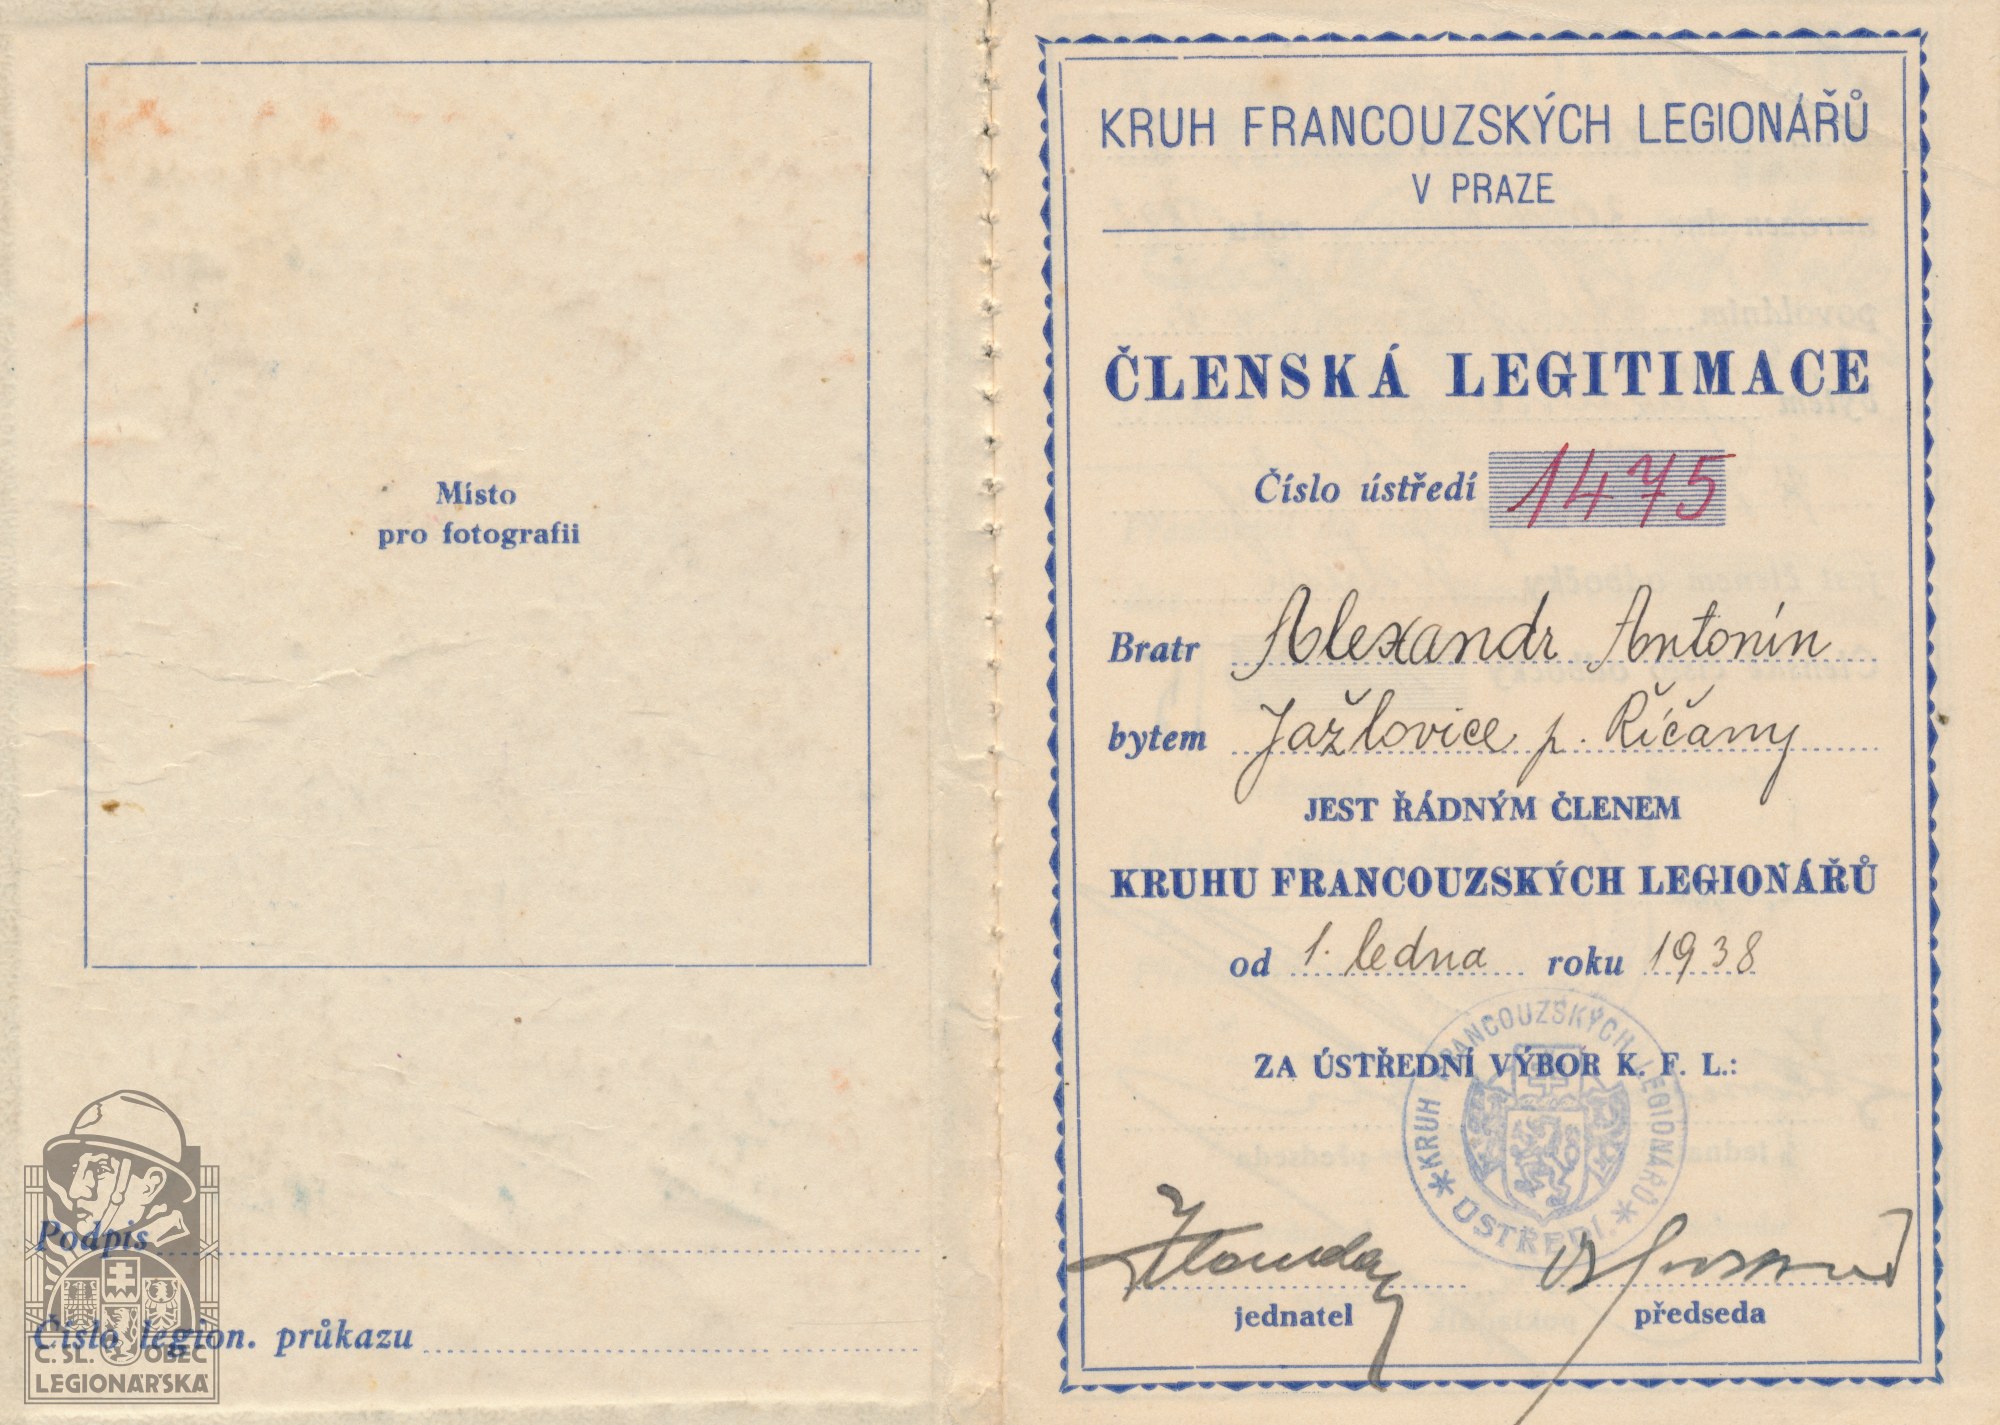 Místo
pro fotografii
Podpis
Číslo legion. průkazu
Č. SL. OBEC
LEGIONÁŘSKÁ
KRUH FRANCOUZSKÝCH LEGIONÁŘŮ
V PRAZE
ČLENSKÁ LEGITIMACE
Číslo ústředí 1475
Bratr Alexandr Antonín
bytem Jažlovice p. Říčany
JEST ŘÁDNÝM ČLENEM
KRUHU FRANCOUZSKÝCH LEGIONÁŘŮ
od 1. ledna roku 1938
ZA ÚSTŘEDNÍ VÝBOR K. F. L.:
KRUH FRANCOUZSKÝCH LEGIONÁŘŮ
* ÚSTŘEDÍ. *
jednatel předseda